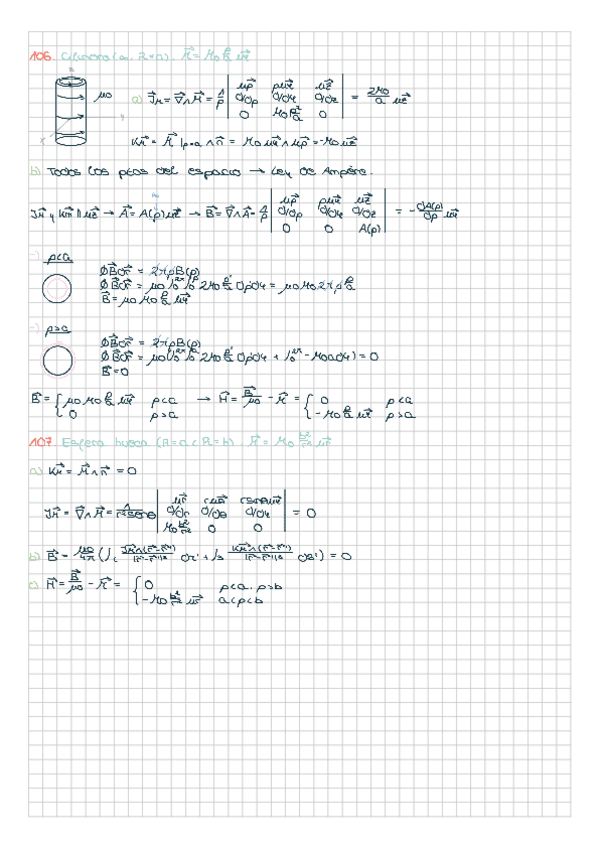 106. Cilindro (∞, R=a). M⃗ = M0 ρ/a uφ⃗
z
μ0
y
x
a) Jm⃗ = ∇⃗∧M⃗ = 1/ρ | uρ⃗ ρuφ⃗ uz⃗ ; d/dρ d/dφ d/dz ; 0 M0 ρ²/a 0 | = 2M0/a uz⃗
Km⃗ = M⃗|ρ=a ∧ n⃗ = M0 uφ⃗ ∧ uρ⃗ = -M0 uz⃗
b) Todos los ptos del espacio → Ley de Ampère.
Jm⃗ y Km⃗ ∥ uz⃗ → A⃗ = A(ρ) uz⃗ → B⃗ = ∇⃗∧A⃗ = 1/ρ | uρ⃗ ρuφ⃗ uz⃗ ; d/dρ d/dφ d/dz ; 0 0 A(ρ) | = - dA(ρ)/dρ uφ⃗
-) ρ<a
∮B⃗dr⃗ = 2πρB(ρ)
∮B⃗dr⃗ = μ0 ∫0^2π ∫0^ρ 2M0 ρ'/a dρdφ = μ0M0 2πρ ρ/a
B⃗ = μ0M0 ρ/a uφ⃗
-) ρ>a
∮B⃗dr⃗ = 2πρB(ρ)
∮B⃗dr⃗ = μ0(∫0^2π ∫0^a 2M0 ρ'/a dρdφ + ∫0^2π -M0adφ) = 0
B⃗ = 0
B⃗ = { μ0M0 ρ/a uφ⃗ ρ<a ; 0 ρ>a → H⃗ = B⃗/μ0 - M⃗ = { 0 ρ<a ; -M0 ρ/a uφ⃗ ρ>a
107. Esfera hueca (R=a < R=b). M⃗ = M0 b²/r² ur⃗
a) Km⃗ = M⃗∧n⃗ = 0
Jm⃗ = ∇⃗∧M⃗ = 1/r²senθ | ur⃗ ruθ⃗ rsenθuφ⃗ ; d/dr d/dθ d/dφ ; M0 b²/r² 0 0 | = 0
b) B⃗ = μ0/4π (∫τ Jm⃗∧(r⃗-r⃗')/|r⃗-r⃗'|³ dτ' + ∫s Km⃗∧(r⃗-r⃗')/|r⃗-r⃗'|³ ds') = 0
c) H⃗ = B⃗/μ0 - M⃗ = { 0 ρ<a, ρ>b ; -M0 b²/r² ur⃗ a<ρ<b